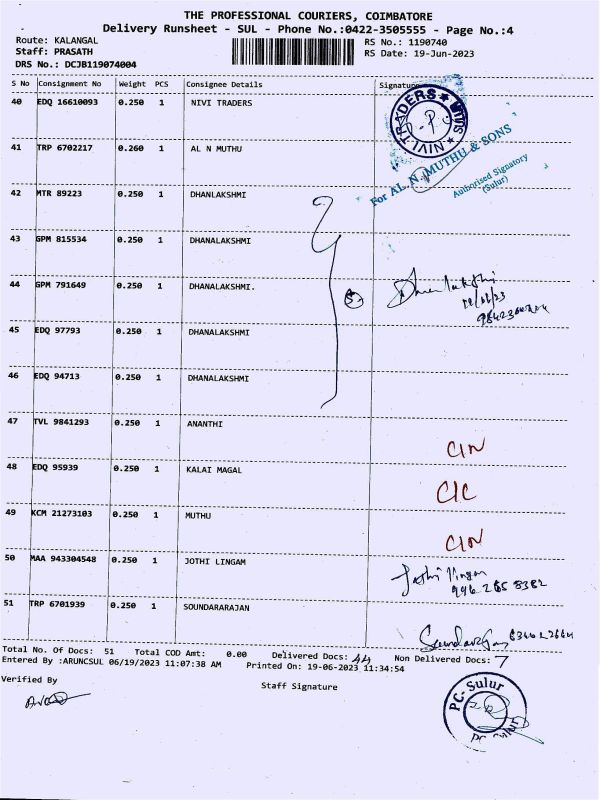 THE PROFESSIONAL COURIERS, COIMBATORE
Delivery Runsheet - SUL - Phone No.:0422-3505555 - Page No.:4
Route: KALANGAL
RS No.: 1190740
Staff: PRASATH
RS Date: 19-Jun-2023
DRS No.: DCJB119074004
S No Consignment No Weight PCS Consignee Details Signature
40 EDQ 16610093 0.250 1 NIVI TRADERS
NIVI TRADERS
SULUR
41 TRP 6702217 0.260 1 AL N MUTHU
For AL. N. MUTHU & SONS
Authorised Signatory
(Sulur)
42 MTR 89223 0.250 1 DHANLAKSHMI
43 GPM 815534 0.250 1 DHANALAKSHMI
44 GPM 791649 0.250 1 DHANALAKSHMI.
5
Dhanalakshi
45 EDQ 97793 0.250 1 DHANALAKSHMI
46 EDQ 94713 0.250 1 DHANALAKSHMI
47 TVL 9841293 0.250 1 ANANTHI
CIN
48 EDQ 95939 0.250 1 KALAI MAGAL
CIC
49 KCM 21273103 0.250 1 MUTHU
CIN
50 MAA 943304548 0.250 1 JOTHI LINGAM
Jothi lingam
996 265 8382
51 TRP 6701939 0.250 1 SOUNDARARAJAN
Total No. Of Docs: 51 Total COD Amt: 0.00 Delivered Docs: 44 Non Delivered Docs: 7
Entered By :ARUNCSUL 06/19/2023 11:07:38 AM Printed On: 19-06-2023 11:34:54
Verified By
Staff Signature
PC-Sulur
PC-Sulur